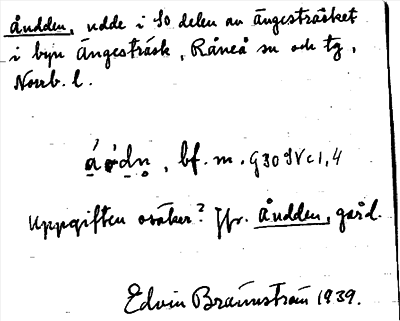 åudden, udde i SO delen av Ängesträsket
i byn Ängesträsk, Råneå sn och tg,
Norrb. l.
bf. m. G30IVc1,4
Uppgiften osäker? Jfr. åudden, gård.
Edvin Brännström 1939.